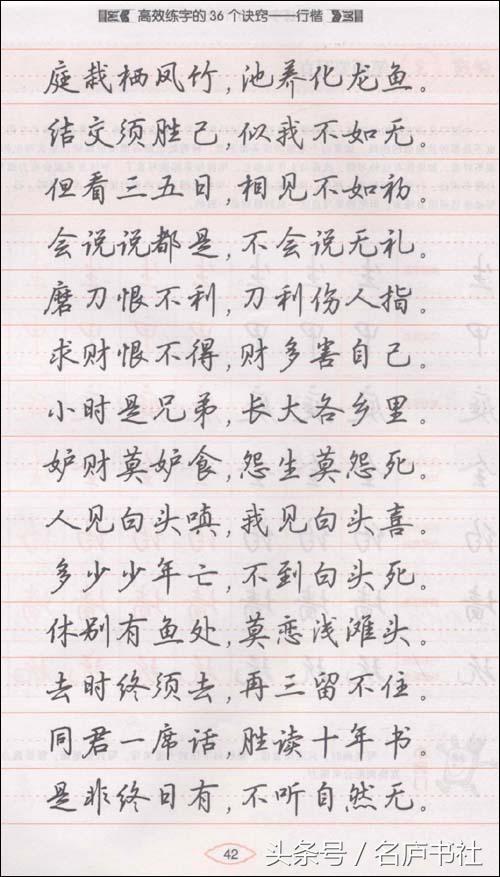 高效练字的36个诀窍——行楷
庭栽栖凤竹,池养化龙鱼。
结交须胜己,似我不如无。
但看三五日,相见不如初。
会说说都是,不会说无礼。
磨刀恨不利,刀利伤人指。
求财恨不得,财多害自己。
小时是兄弟,长大各乡里。
妒财莫妒食,怨生莫怨死。
人见白头嗔,我见白头喜。
多少少年亡,不到白头死。
休别有鱼处,莫恋浅滩头。
去时终须去,再三留不住。
同君一席话,胜读十年书。
是非终日有,不听自然无。
42
头条号/名庐书社